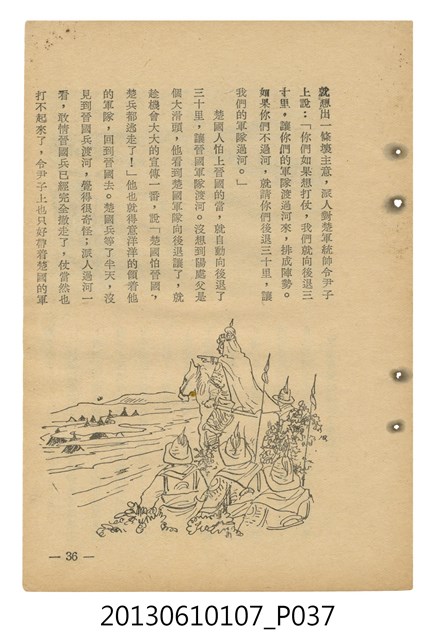 就想出一條壞主意，派人對楚軍統帥令尹子
上說：「你們如果想打仗，我們就向後退三
十里，讓你們的軍隊渡過河來，排成陣勢。
如果你們不過河，就請你們後退三十里，讓
我們的軍隊過河。」
楚國人怕上晉國的當，就自動向後退了
三十里，讓晉國軍隊渡河。沒想到陽處父是
個大滑頭，他看到楚國軍隊向後退讓了，就
趁機會大大的宣傳一番，說「楚國怕晉國，
楚兵都逃走了！」他也就得意洋洋的領着他
的軍隊，回到晉國去。楚國兵等了半天，沒
見到晉國兵渡河，覺得很奇怪；派人過河一
看，敢情晉國兵已經完全撤走了，仗當然也
打不起來了，令尹子上也只好帶着楚國的軍
— 36 —
20130610107_P037